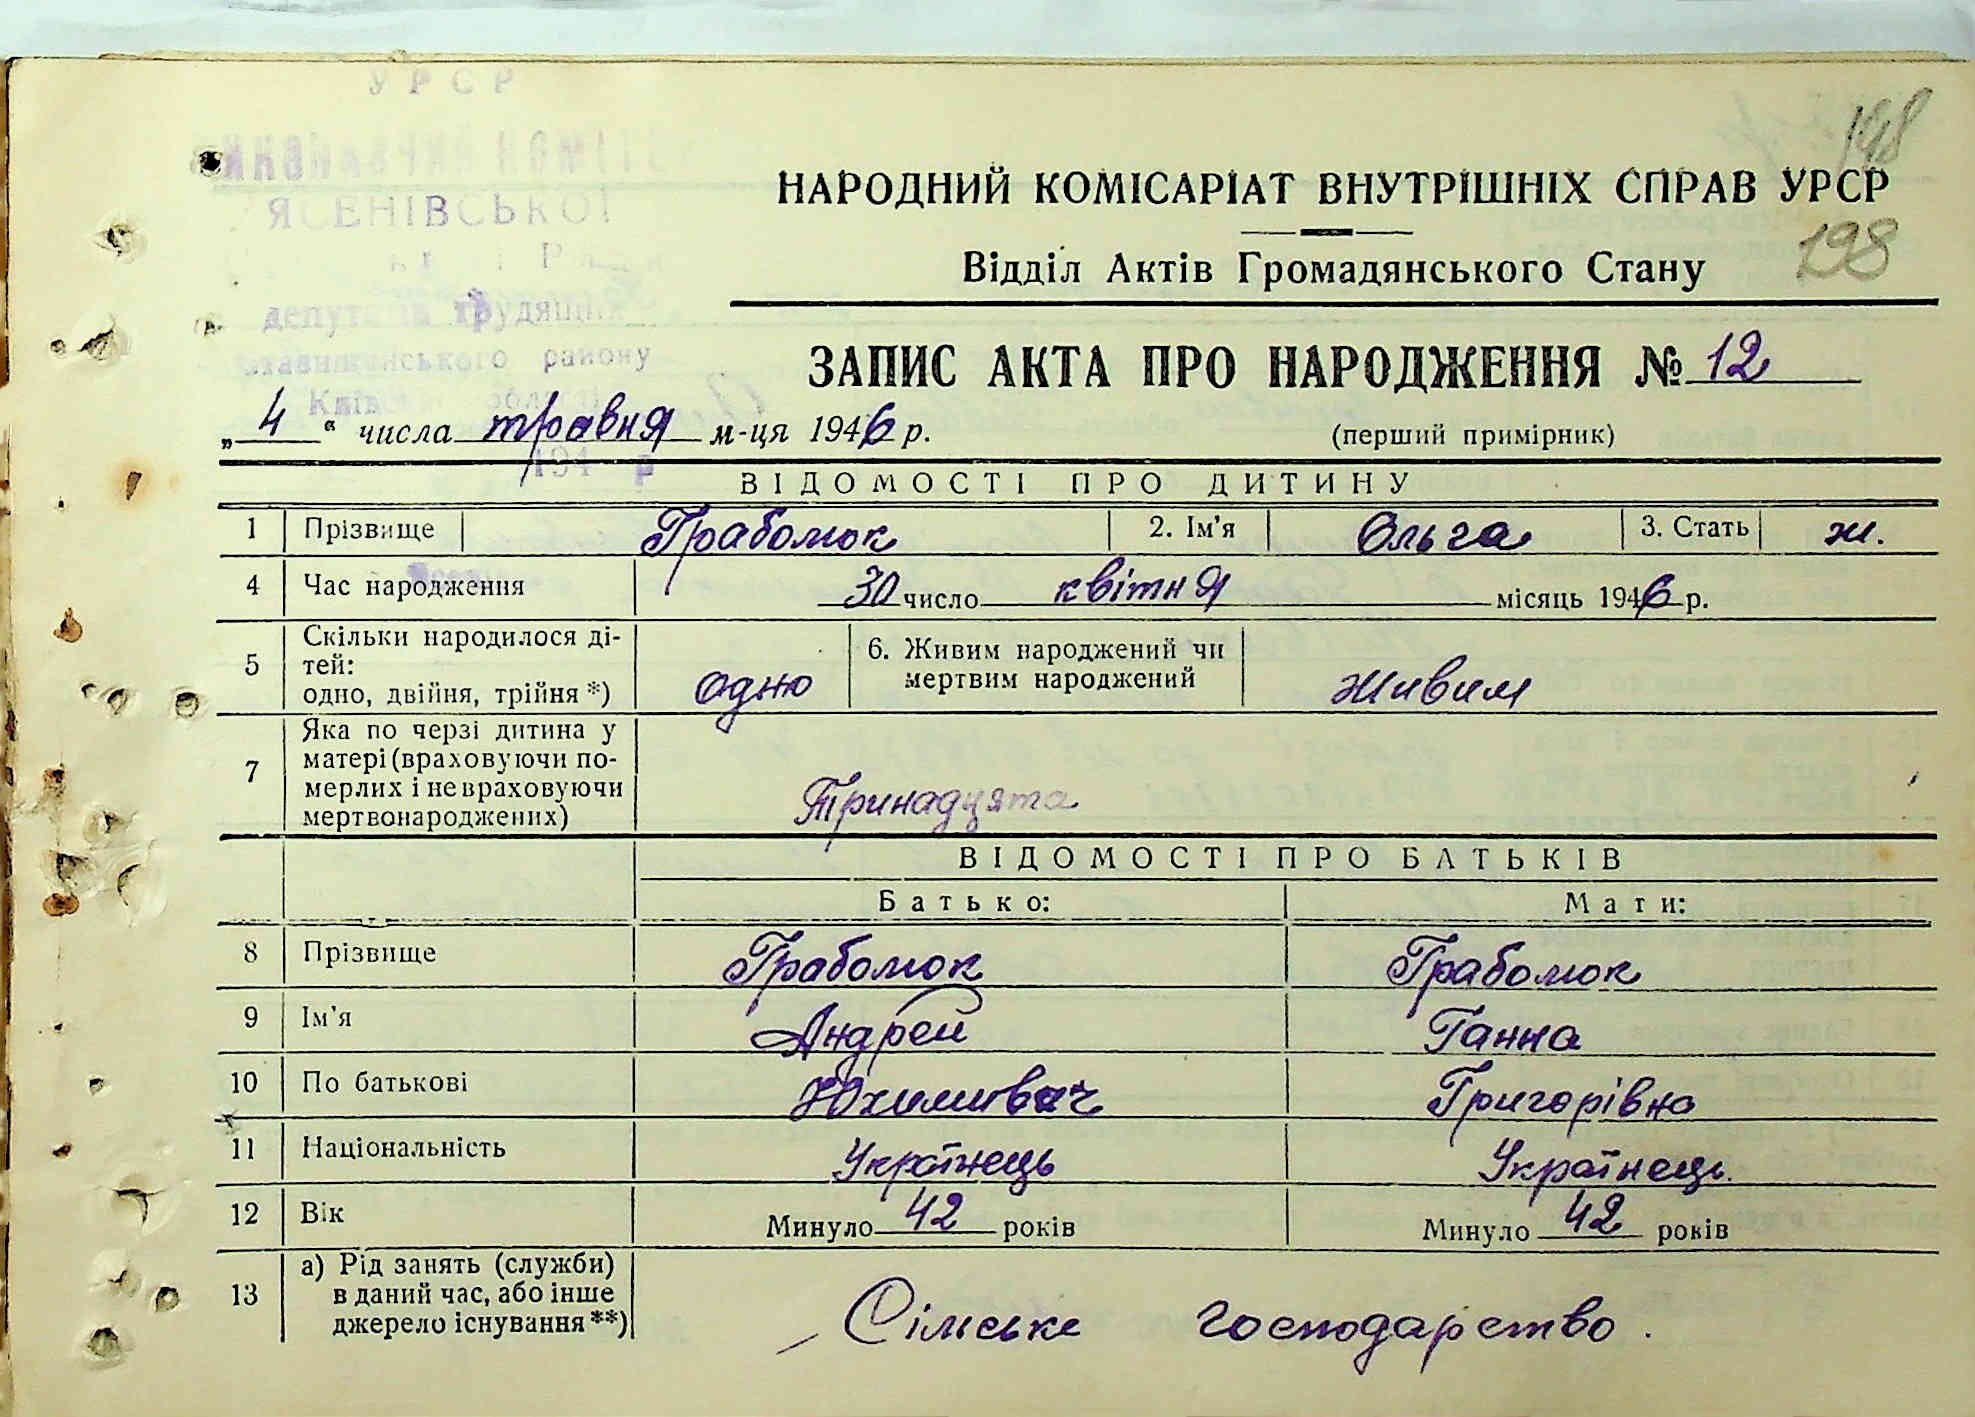 УРСР
ЯСЕНІВСЬКОЇ
депутатів трудящих
району
194 р
198
НАРОДНИЙ КОМІСАРІАТ ВНУТРІШНІХ СПРАВ УРСР
198
Відділ Актів Громадянського Стану
ЗАПИС АКТА ПРО НАРОДЖЕННЯ № 12
„4“ числа травня м-ця 1946 р.
(перший примірник)
ВІДОМОСТІ ПРО ДИТИНУ
1 Прізвище Граболюк 2. Ім'я Ольга 3. Стать ж.
4 Час народження 30 число квітня місяць 1946 р.
5 Скільки народилося ді-
тей:
одно, двійня, трійня *) одно
6. Живим народжений чи
мертвим народжений живим
7 Яка по черзі дитина у
матері (враховуючи по-
мерлих і не враховуючи
мертвонароджених) Тринадцята
ВІДОМОСТІ ПРО БАТЬКІВ
Батько: Мати:
8 Прізвище Граболюк Граболюк
9 Ім'я Андрей Ганна
10 По батькові Юхимович Григорівна
11 Національність Українець Українець.
12 Вік Минуло 42 років Минуло 42 років
13 а) Рід занять (служби)
в даний час, або інше
джерело існування **) Сільське господарство.